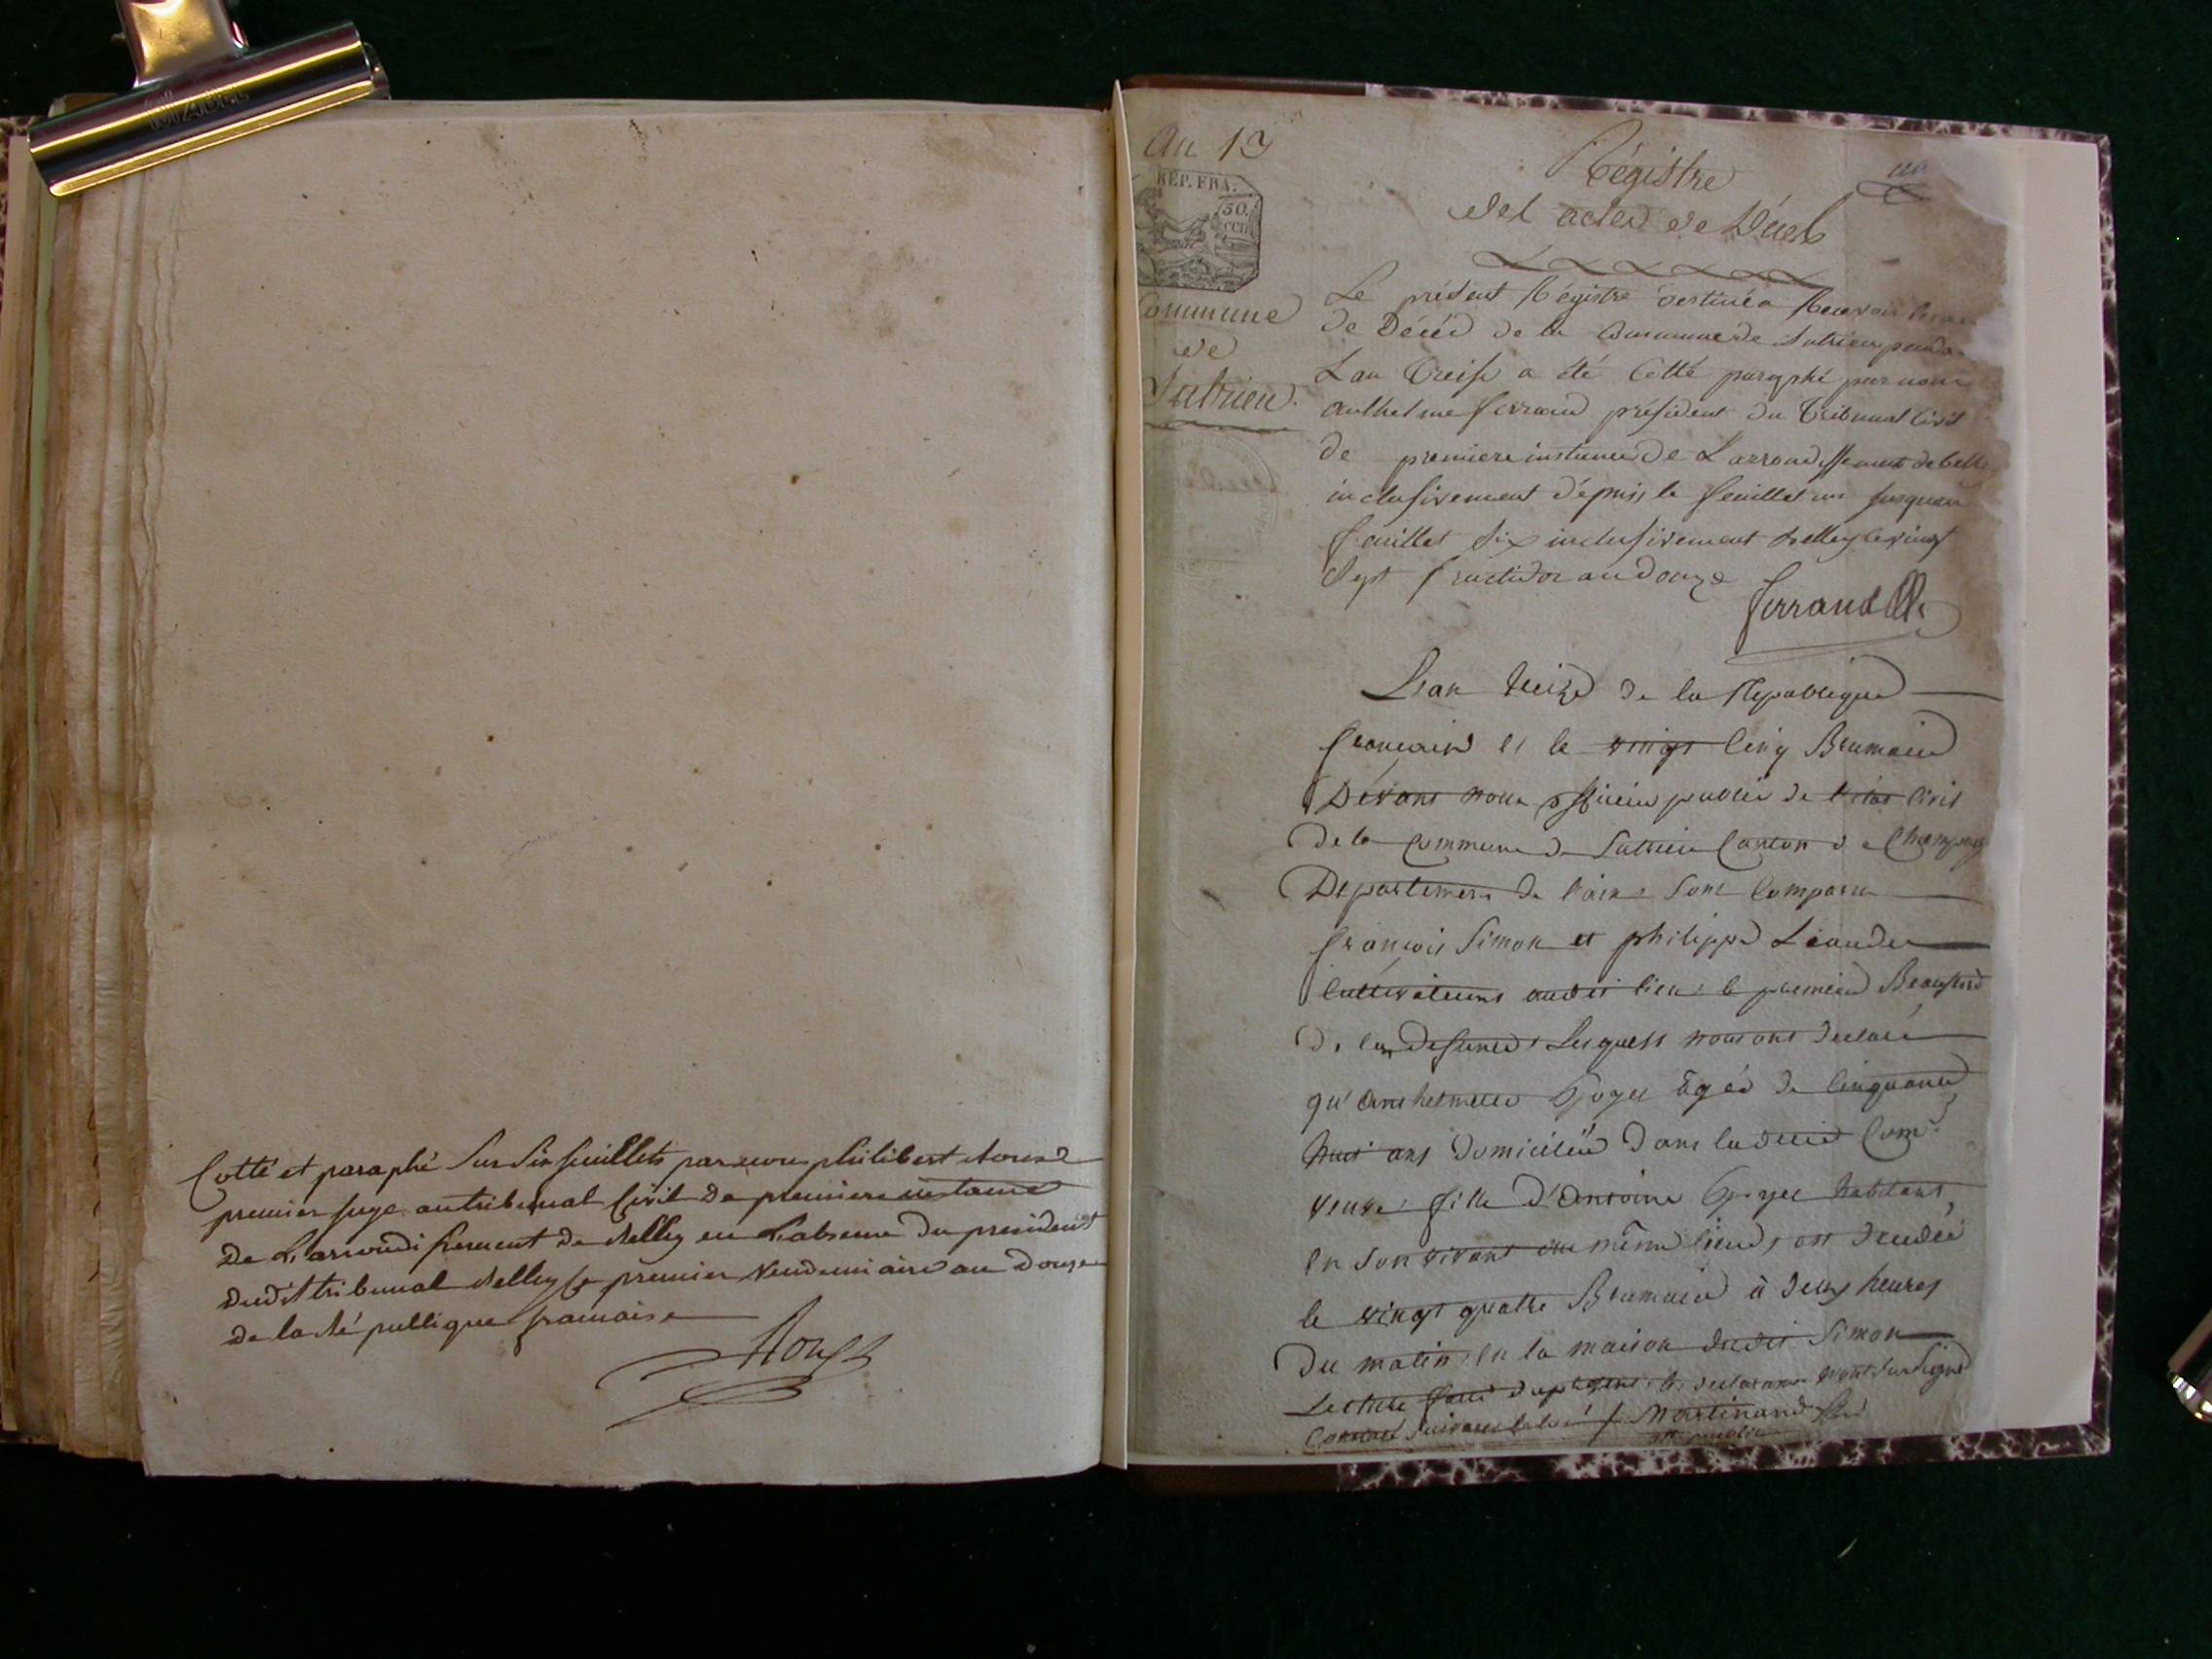 Cotté et paraphé sur six feuillets par nous philibert
premier juge au tribunal Civil de premiere instance
de L'arrondissement de Belley en L'absence du president
dudit tribunal Belley le premier Vendemiaire an Douze
de la République francaise
An 13
REP. FRA.
50.
CEN
Commune
de
Sutrieu
un
Régistre
des actes de Décès
Le présent Régistre destiné a Recevoir les
de Décès de la Commune de Sutrieu
L'an Treise a été Cotté paraphé par nous
Anthelme ferrand président du Tribunal Civil
de premiere instance de L'arrondissement de
inclusivement dépuis le feuillet un jusquau
feuillet Six inclusivement Belley le vingt
Sept fructidor an douze
ferrand
L'an treize de la Republique
francaise et le vingt cinq Brumaire
Devant nous officier public de l'état civil
de la Commune de Sutrieu Canton de
Departement de l'ain Sont Comparu
francois Simon et philippe
Cultivateurs audit lieu; le premier
de la defunte; Lesquels nous ont declaré
qu' agée de Cinquante
huit ans domiciliée dans ladite Com.
veuve; fille d'Antoine habitant
en son vivant au même lieu, est
le vingt quatre Brumaire à deux heures
du matin; en la maison dudit Simon
Lecture faite
Martinand
off public